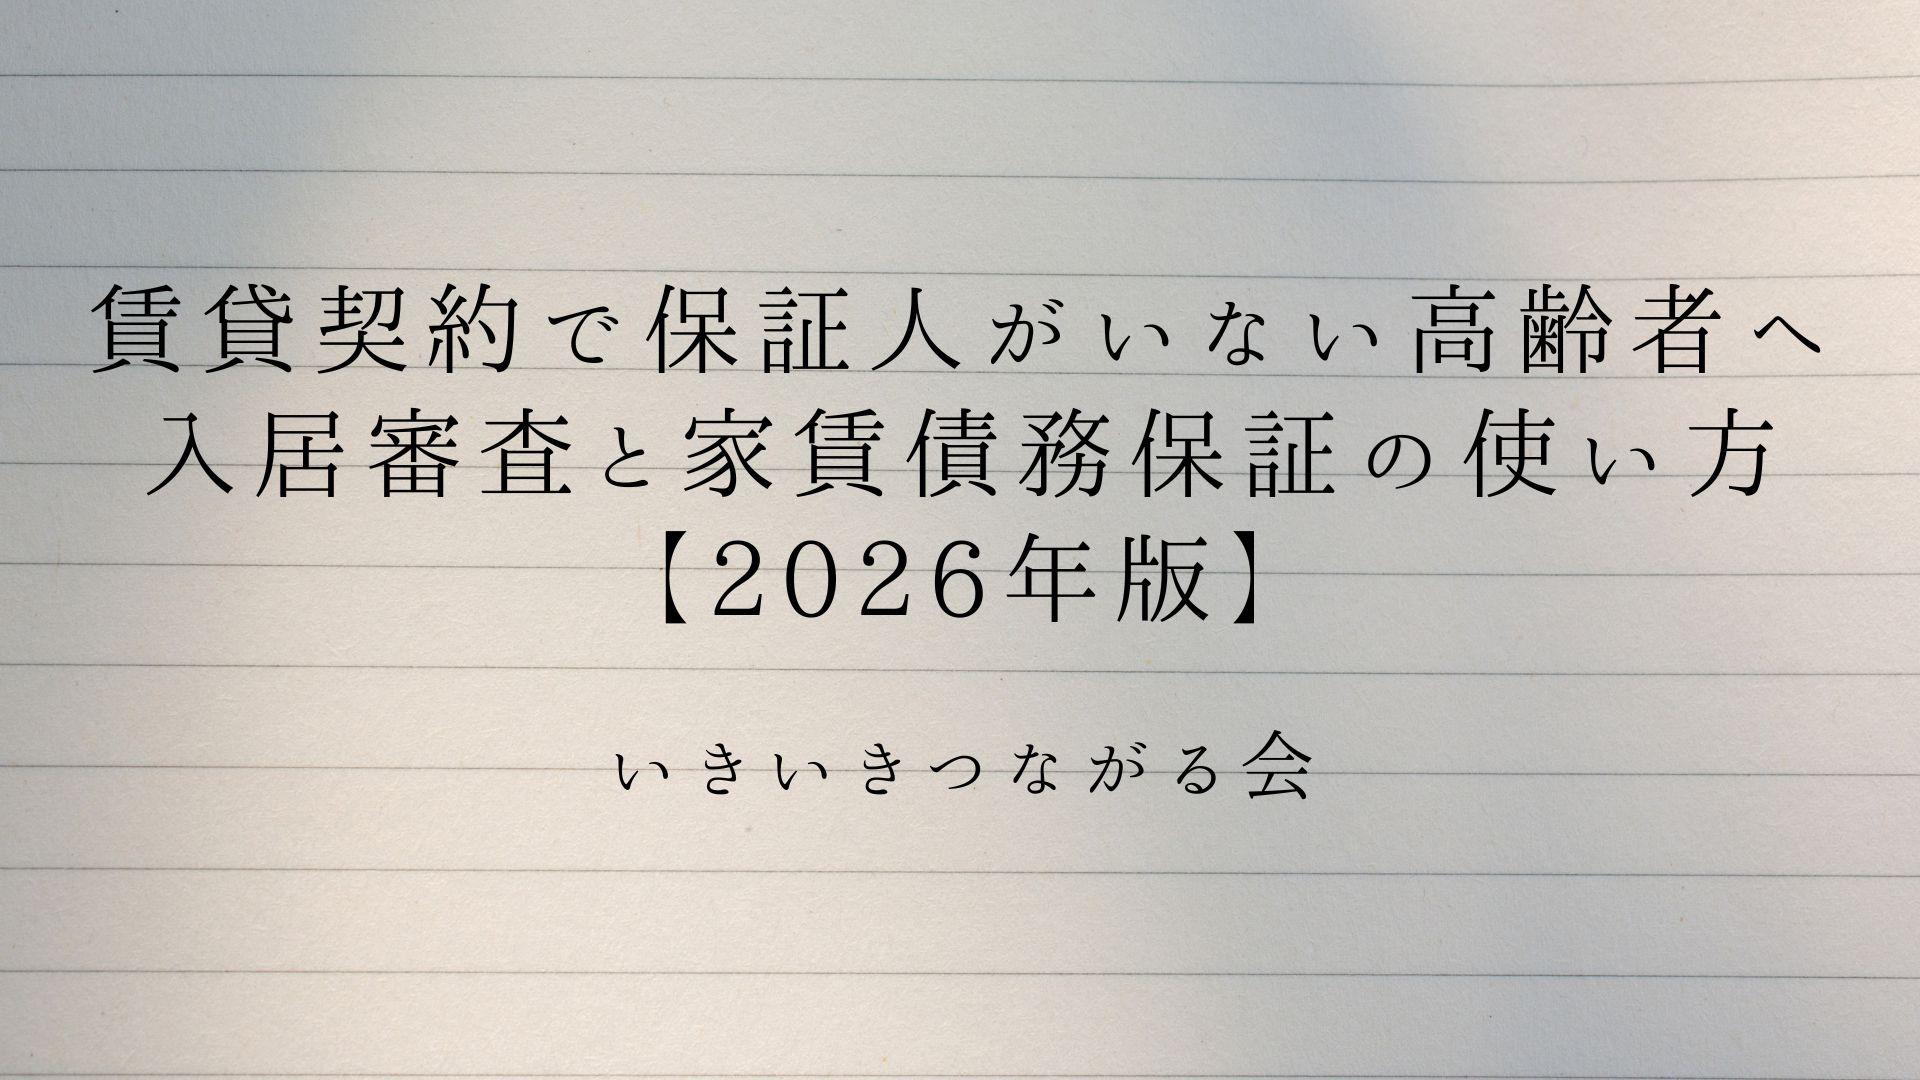 賃貸契約で保証人がいない高齢者へ
入居審査と家賃債務保証の使い方
【2026年版】
いきいきつながる会